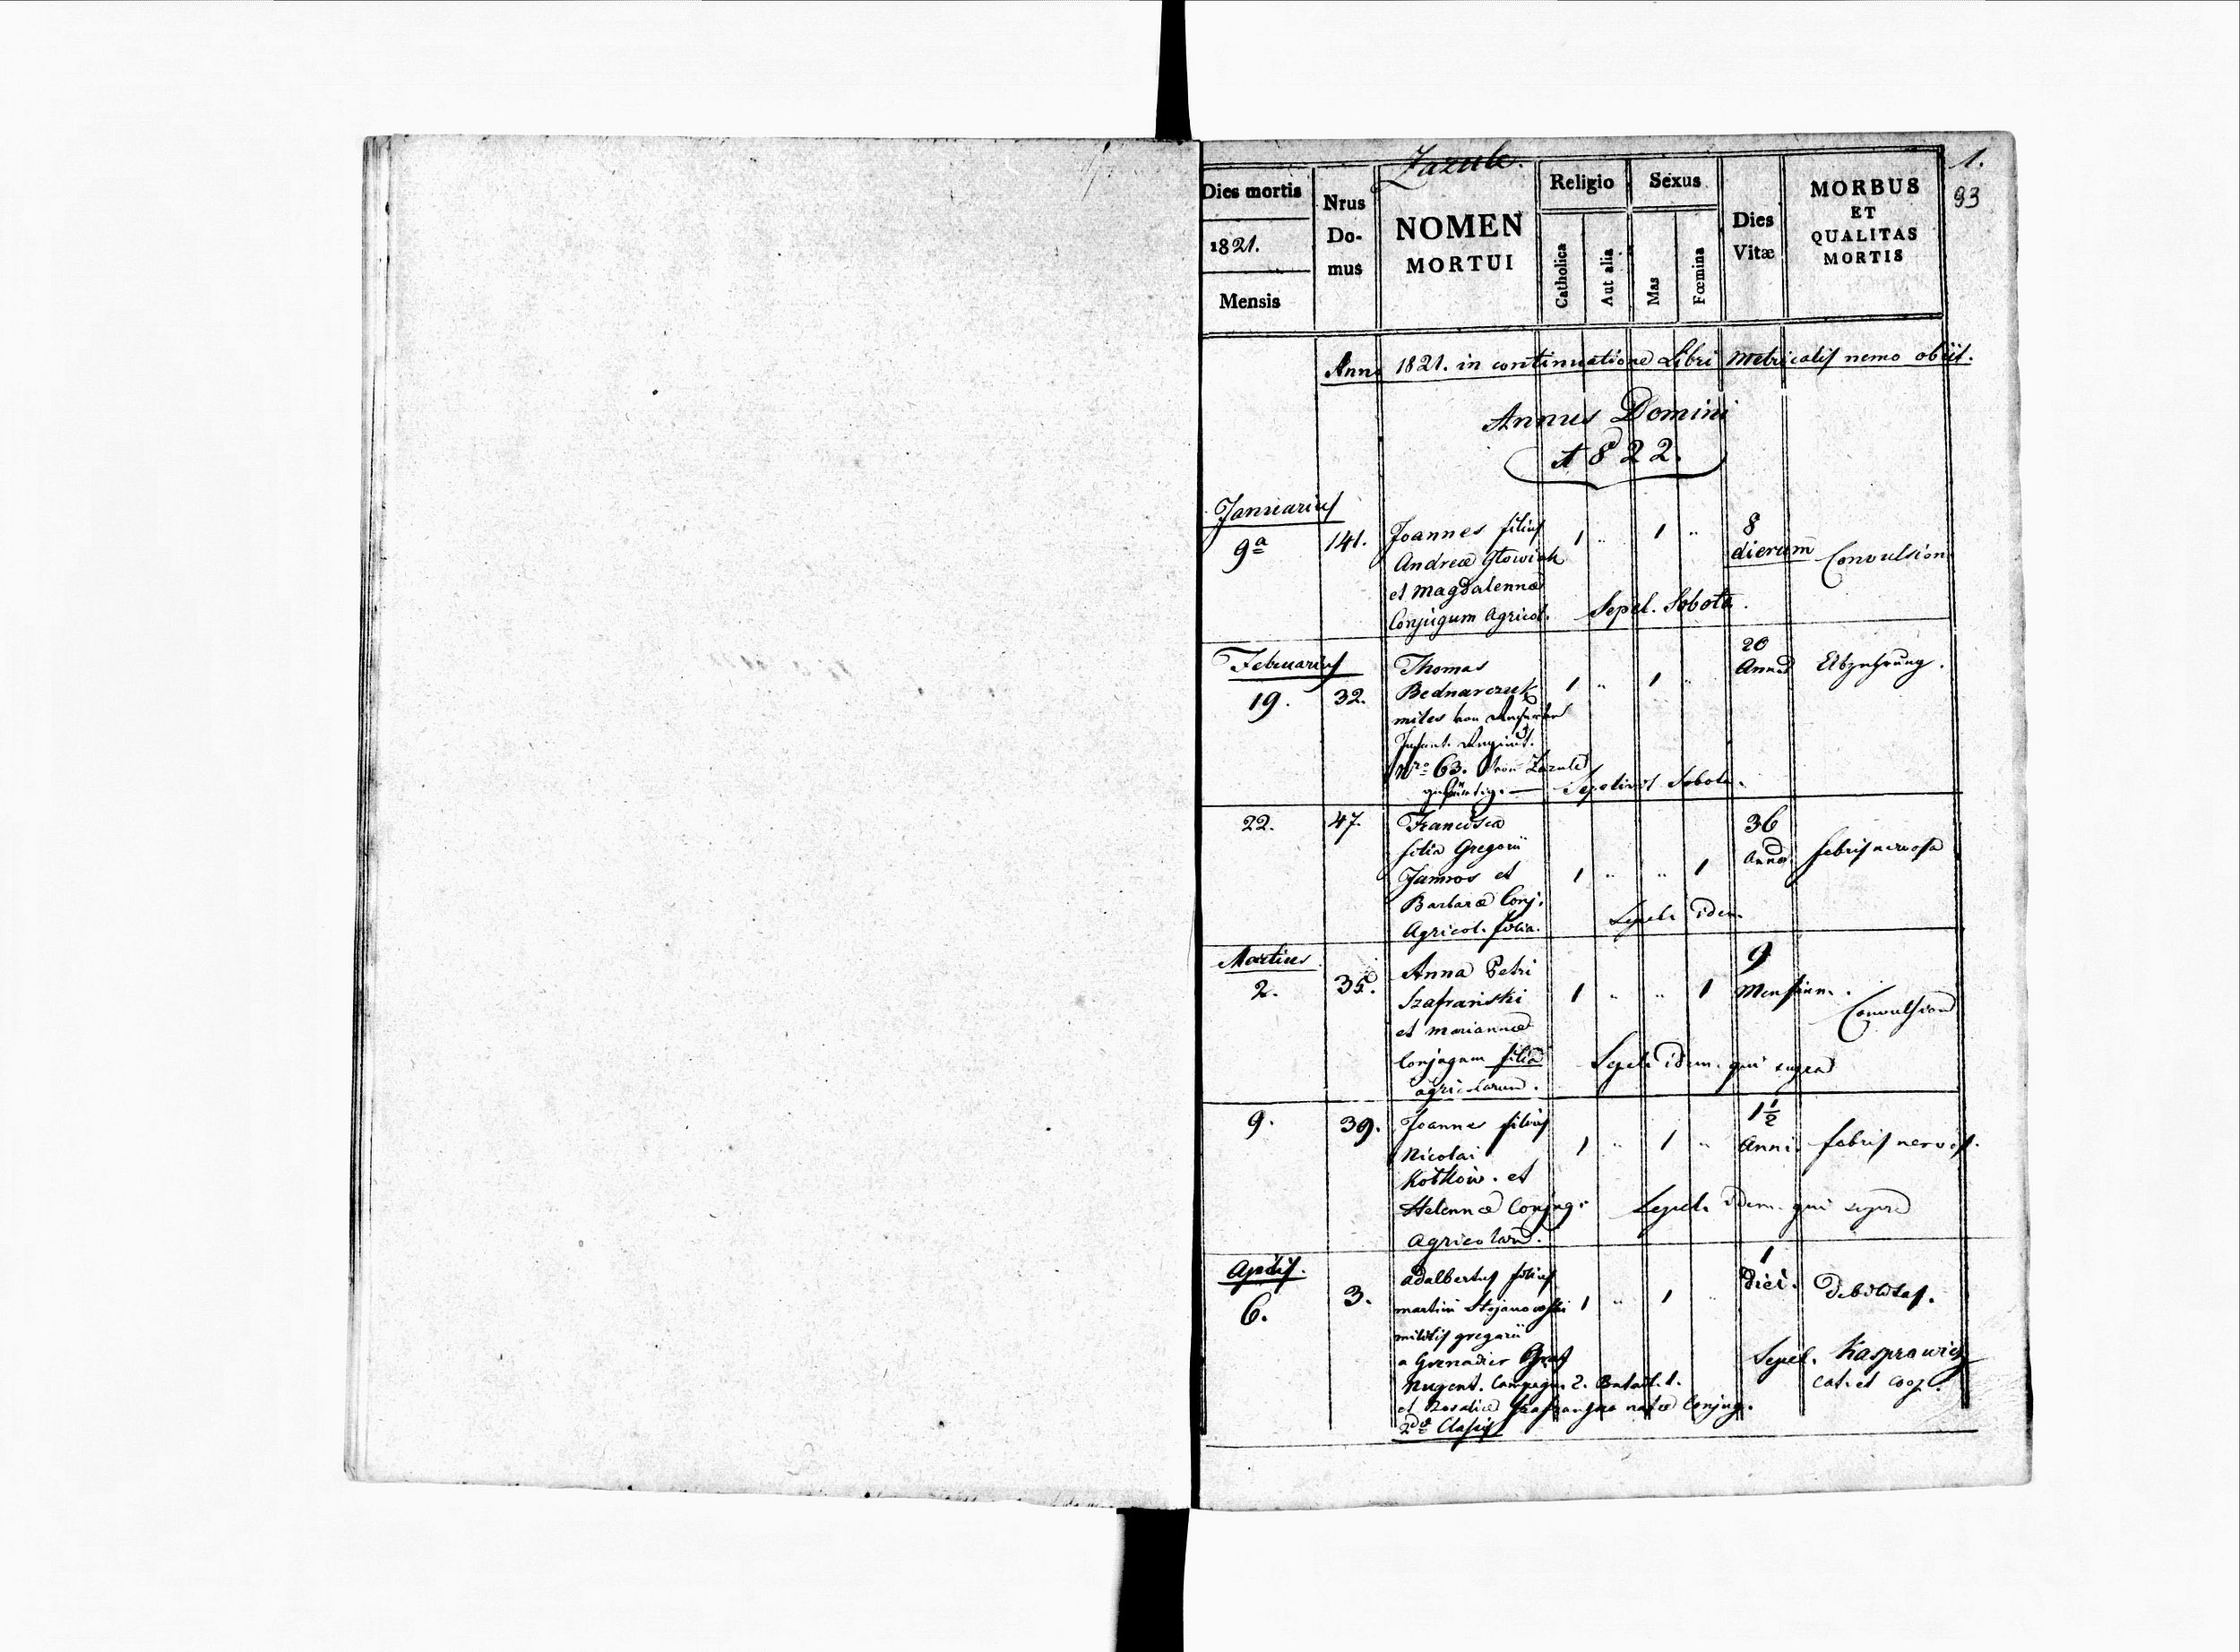 Zazule.
1.
93
Dies mortis
1821.
Mensis
Nrus
Do-
mus
NOMEN
MORTUI
Religio
Catholica
Aut alia
Sexus
Mas
Fœmina
Dies
Vitæ
MORBUS
ET
QUALITAS
MORTIS
Anno 1821. in continuatione Libri Metricalis nemo obiit.
Annus Domini
1822.
Januarius
9a 141. Joannes filius 1 " 1 " 8
Andreæ Głowiak dierum Convulsion
et Magdalennæ
Conjugum Agricol. Sepel. Sobota.
Februarius Thomas 20
19. 32. Bednarczuk 1 " 1 " Annor Abzehrung.
miles von
Infant. Regimt.
Nro 63. von Zazule
gebürtig. — Sepelivit Sobota.
22. 47. Francisca 36
filia Gregorii Annor febris nervosa
Jamros et 1 " " 1
Barbaræ Conj.
Agricol. filia. Sepel. idem.
Martius Anna Petri 9
2. 35. Szafrański 1 " " 1 Mensium.
et Mariannæ Convulsion
Conjugum filia Sepel. idem. qui supra
agricolarum.
9. 39. Joannes filius 1½
Nicolai 1 " 1 " Anni. febris nervos.
Kotkow. et
Helennæ Conjug. Sepel. idem. qui supra
Agricolarum.
Aprilis. Adalbertus filius 1
6. 3. Martini Stojanowski 1 " 1 " diei. Debilitas.
militis gregarii
a Grenadier Graf Sepel. Kasprowicz
Nugent. Compagn. 2. Batail. 1. cat. et coop.
et Rosaliæ natæ Conjug.
2dæ Classis